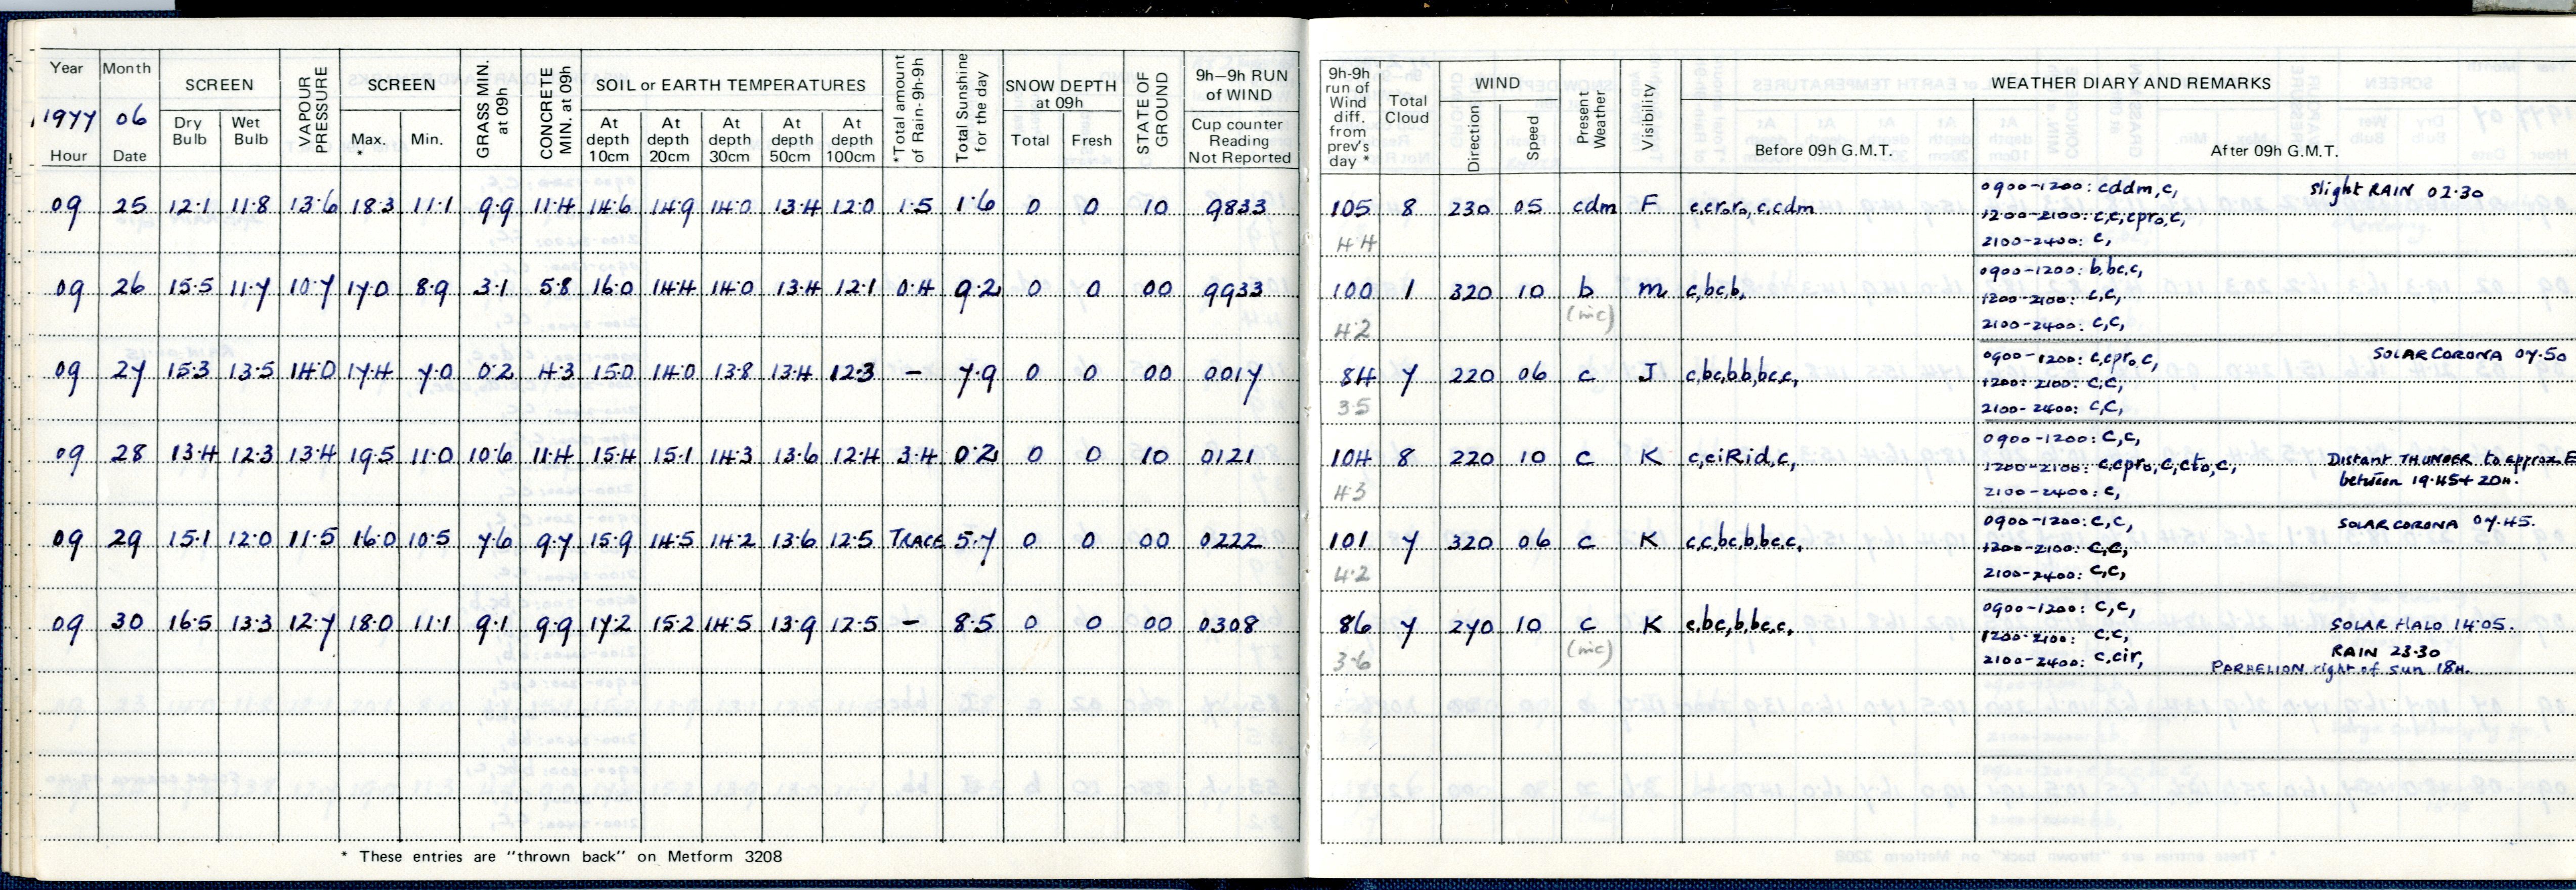 Year Month SCREEN VAPOUR PRESSURE SCREEN GRASS MIN. at 09h CONCRETE MIN. at 09h SOIL or EARTH TEMPERATURES *Total amount of Rain-9h-9h Total Sunshine for the day SNOW DEPTH at 09h STATE OF GROUND 9h-9h RUN of WIND
1977 06 Dry Bulb Wet Bulb Max. * Min. At depth 10cm At depth 20cm At depth 30cm At depth 50cm At depth 100cm Total Fresh Cup counter Reading Not Reported
Hour Date
09 25 12.1 11.8 13.6 18.3 11.1 9.9 11.4 14.6 14.9 14.0 13.4 12.0 1.5 1.6 0 0 10 9833
09 26 15.5 11.7 10.7 17.0 8.9 3.1 5.8 16.0 14.4 14.0 13.4 12.1 0.4 9.2 0 0 00 9933
09 27 15.3 13.5 14.0 17.4 7.0 0.2 4.3 15.0 14.0 13.8 13.4 12.3 – 7.9 0 0 00 0017
09 28 13.4 12.3 13.4 19.5 11.0 10.6 11.4 15.4 15.1 14.3 13.6 12.4 3.4 0.2 0 0 10 0121
09 29 15.1 12.0 11.5 16.0 10.5 7.6 9.7 15.9 14.5 14.2 13.6 12.5 TRACE 5.7 0 0 00 0222
09 30 16.5 13.3 12.7 18.0 11.1 9.1 9.9 17.2 15.2 14.5 13.9 12.5 – 8.5 0 0 00 0308
* These entries are "thrown back" on Metform 3208
9h-9h run of Wind diff. from prev's day * Total Cloud WIND Present Weather Visibility WEATHER DIARY AND REMARKS
Direction Speed Before 09h G.M.T. After 09h G.M.T.
0900-1200: cddm,c, Slight RAIN 02.30
105 8 230 05 cdm F c,cr₀r₀,c,cdm 1200-2100: c,c,cpr₀,c,
4.4 2100-2400: c,
0900-1200: b,bc,c,
100 1 320 10 b m c,bc,b, 1200-2100: c,c,
(mc)
4.2 2100-2400: c,c,
0900-1200: c,cpr₀c, SOLAR CORONA 07.50
84 7 220 06 c J c,bc,bb,bc,c, 1200-2100: c,c,
3.5 2100-2400: c,c,
0900-1200: c,c,
104 8 220 10 c K c,ciRid,c, 1200-2100: c,cpr₀,c,ct₀,c, Distant THUNDER to approx E
4.3 2100-2400: c, between 19.45+20H.
0900-1200: c,c, SOLAR CORONA 07.45.
101 7 320 06 c K c,c,bc,b,bc,c, 1200-2100: c,c,
4.2 2100-2400: c,c,
0900-1200: c,c,
86 7 270 10 c K c,bc,b,bc,c, 1200-2100: c,c, SOLAR HALO 14.05.
(mc)
3.6 2100-2400: c,cir, RAIN 23.30
PARHELION right of sun 18H.